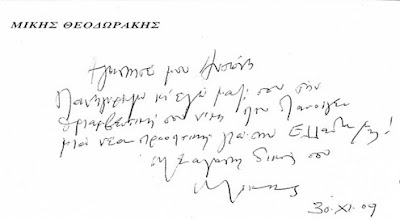 ΜΙΚΗΣ ΘΕΟΔΩΡΑΚΗΣ
Αγαπητέ μου Αντώνη
Πανηγυρίζω κι' εγώ μαζί σου την
θριαμβευτική σου νίκη που ανοίγει
μιά νέα προοπτική γιά την Ελλάδα μας!
Μ' αγάπη δικός σου
Μίκης
30-XI-09